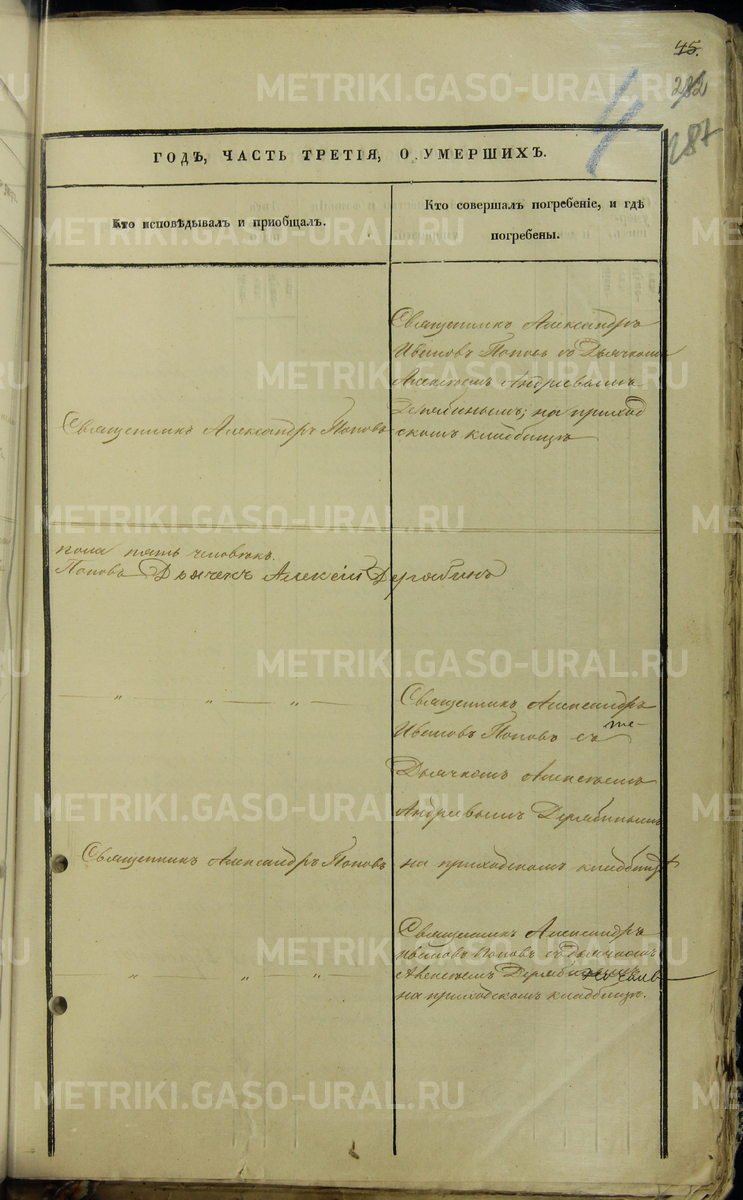 45.
282
287
ГОДЪ, ЧАСТЬ ТРЕТІЯ, О УМЕРШИХЪ.
Кто исповѣдывалъ и пріобщалъ.
Кто совершалъ погребеніе, и гдѣ
погребены.
Священникъ Александръ
Ивановъ Поповъ съ Дьячкомъ
Алексѣемъ Андреевымъ
Дерябинымъ; на приход
скомъ кладбищѣ
Священникъ Александръ Поповъ
пола пять человѣкъ.
Поповъ Дьячекъ Алексій Дерябинъ
— „ — „ — „ —
Священникъ Александръ
Ивановъ Поповъ съ
Дьячкомъ Алексѣемъ
Андреевымъ Дерябинымъ
на приходскомъ кладбищѣ
Священникъ Александръ Поповъ
Священникъ Александръ
Ивановъ Поповъ съ дьячкомъ
Алексѣемъ Дерябинымъ
на приходскомъ кладбищѣ.
„ — „ — „ —
METRIKI.GASO-URAL.RU